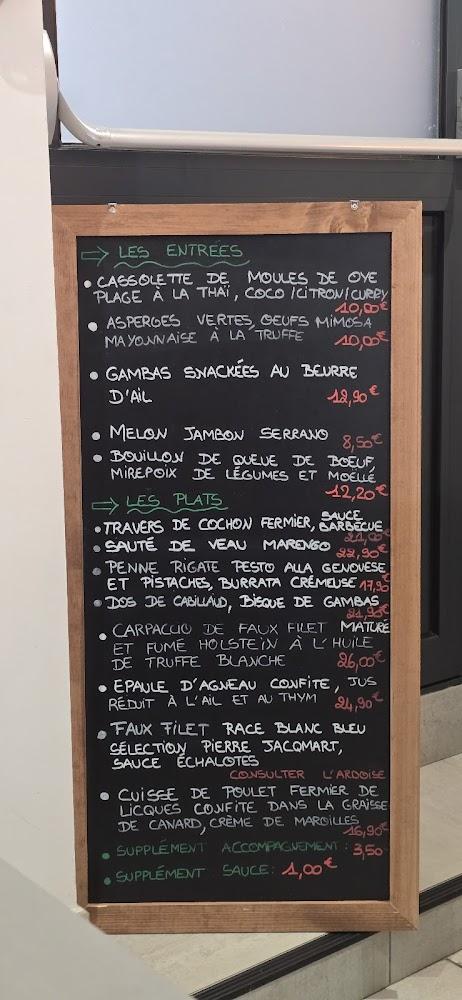 LES ENTREES
• CASSOLETTE DE MOULES DE OYE
PLAGE À LA THAÏ, COCO/CITRON/CURRY
10,00€
• ASPERGES VERTES, OEUFS MIMOSA
MAYONNAISE À LA TRUFFE 10,00€
• GAMBAS SNACKÉES AU BEURRE
D'AIL 18,90€
• MELON JAMBON SERRANO 8,50€
• BOUILLON DE QUEUE DE BOEUF,
MIREPOIX DE LÉGUMES ET MOËLLE
12,20€
LES PLATS
• TRAVERS DE COCHON FERMIER, SAUCE BARBECUE
21,00€
• SAUTÉ DE VEAU MARENGO 22,90€
• PENNE RIGATE PESTO ALLA GENOVESE
ET PISTACHES, BURRATA CRÉMEUSE 17,90€
• DOS DE CABILLAUD, BISQUE DE GAMBAS
21,90€
• CARPACCIO DE FAUX FILET MATURÉ
ET FUMÉ HOLSTEIN À L'HUILE
DE TRUFFE BLANCHE 26,00€
• EPAULE D'AGNEAU CONFITE, JUS
RÉDUIT À L'AIL ET AU THYM 24,90€
• FAUX FILET RACE BLANC BLEU
SÉLECTION PIERRE JACQMART,
SAUCE ÉCHALOTES
CONSULTER L'ARDOISE
• CUISSE DE POULET FERMIER DE
LICQUES CONFITE DANS LA GRAISSE
DE CANARD, CRÈME DE MAROILLES
16,90€
• SUPPLÉMENT ACCOMPAGNEMENT : 3,50
• SUPPLÉMENT SAUCE : 1,00€